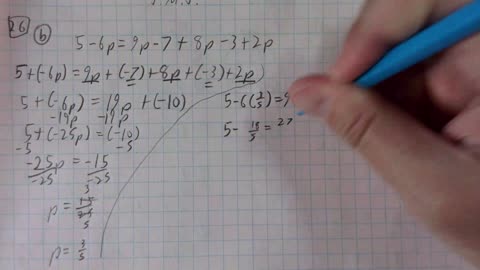 26 b) 5-6p=9p-7+8p-3+2p
5+(-6p)=9p+(-7)+8p+(-3)+2p
5+(-6p)=19p+(-10)
-19p -19p
5+(-25p)=(-10)
-5 -5
-25p = -15
-25 -25
3
p = 15/25
5
p = 3/5
5-6(3/5)=9
5- 18/5 = 27